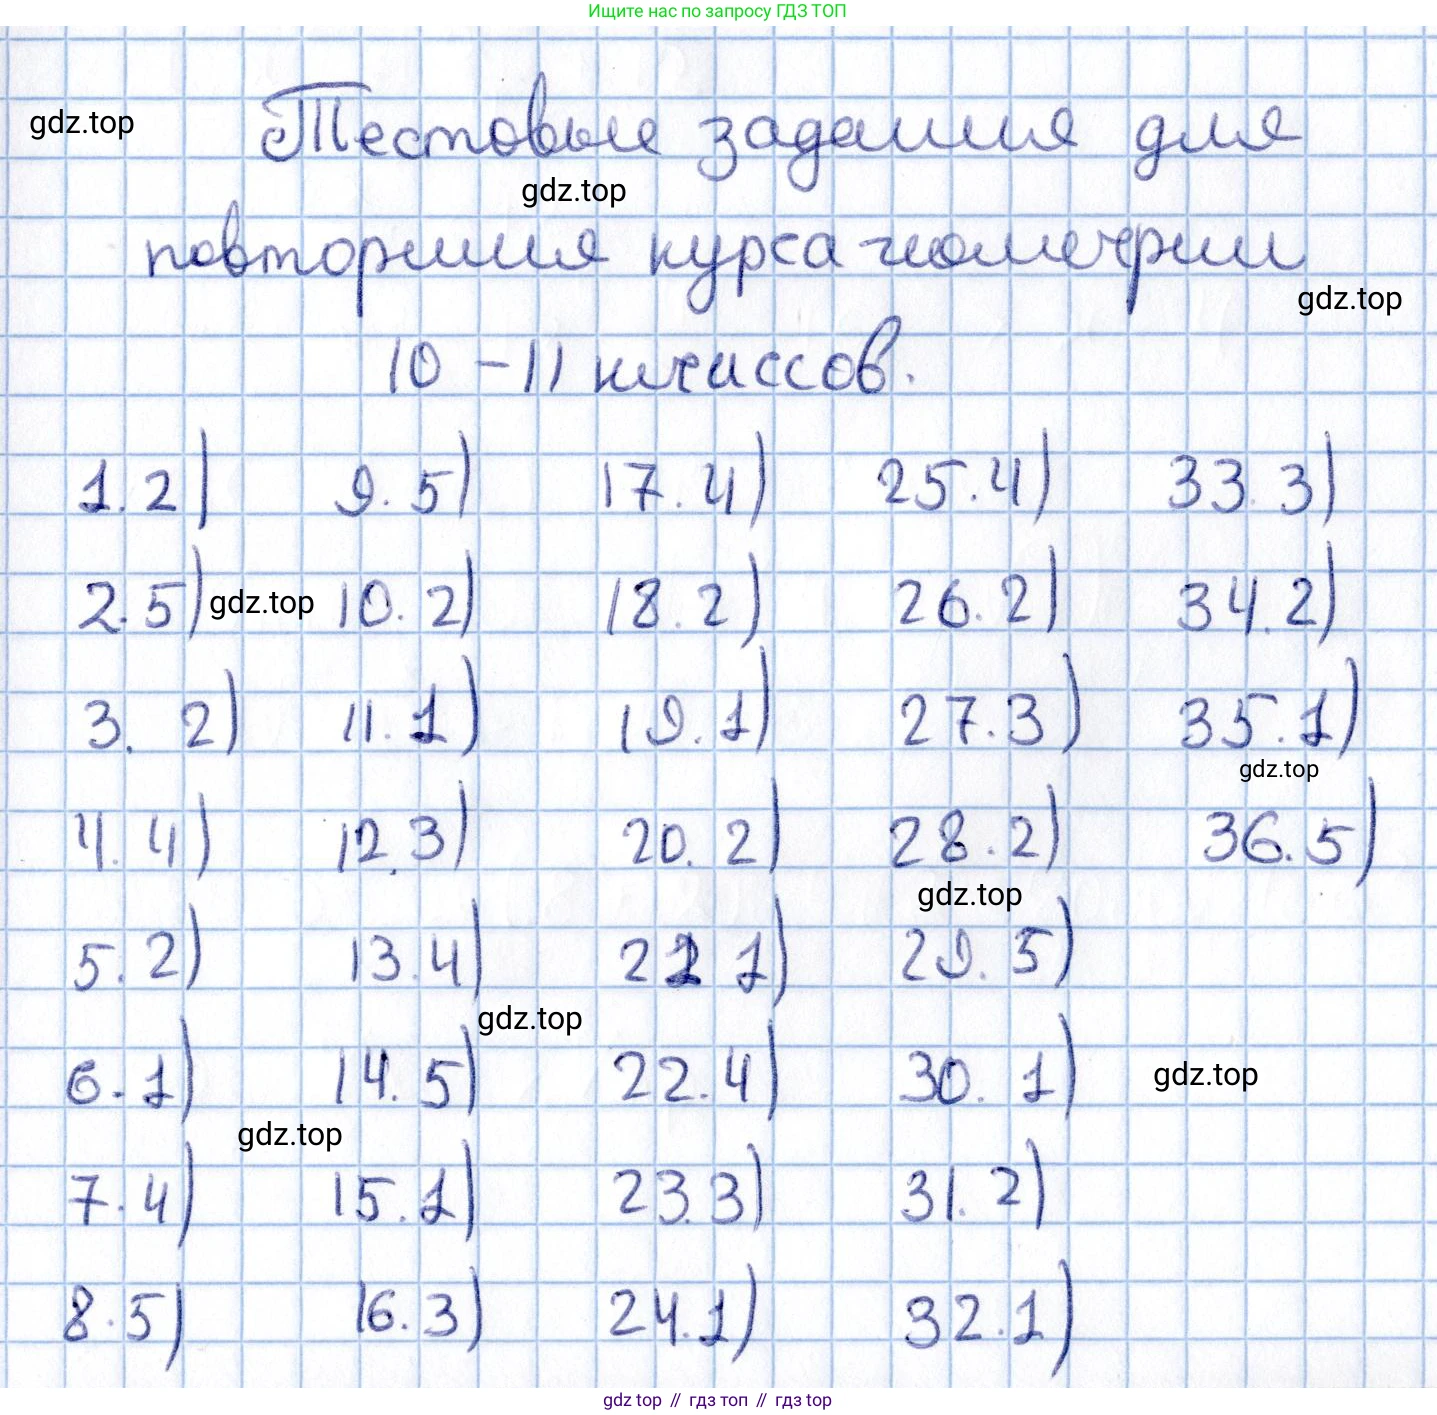 Ищите нас по запросу ГДЗ ТОП
gdz.top
Тестовые задания для
gdz.top
повторения курса геометрии
gdz.top
10 – 11 классов.
1. 2) 9. 5) 17. 4) 25. 4) 33. 3)
2. 5) gdz.top 10. 2) 18. 2) 26. 2) 34. 2)
3. 2) 11. 1) 19. 1) 27. 3) 35. 1)
gdz.top
4. 4) 12. 3) 20. 2) 28. 2) 36. 5)
gdz.top
5. 2) 13. 4) 21 1) 29. 5)
gdz.top
6. 1) 14. 5) 22. 4) 30. 1) gdz.top
gdz.top
7. 4) 15. 1) 23. 3) 31. 2)
8. 5) 16. 3) 24. 1) 32. 1)
gdz top // гдз топ // гдз top